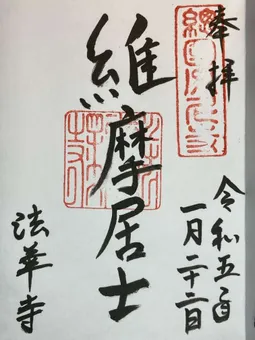 奉拝
維摩居士
令和五年
一月二十二日
法華寺